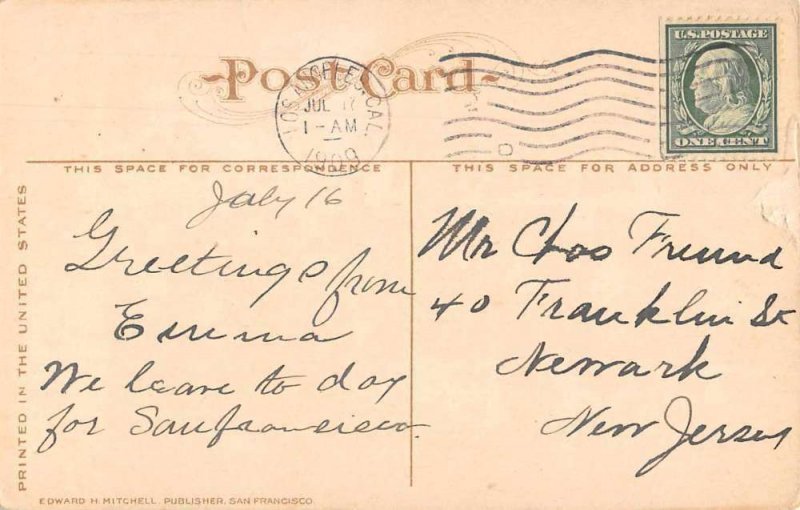 Post Card
LOS ANGELES, CAL.
JUL 17
1-AM
1909
U.S. POSTAGE
ONE CENT
THIS SPACE FOR CORRESPONDENCE
THIS SPACE FOR ADDRESS ONLY
PRINTED IN THE UNITED STATES
July 16
Greetings from
Emma
We leave to day
for Sanfrancisco.
Mr Chas Freund
40 Franklin St
Newark
New Jersey
EDWARD H. MITCHELL, PUBLISHER, SAN FRANCISCO.